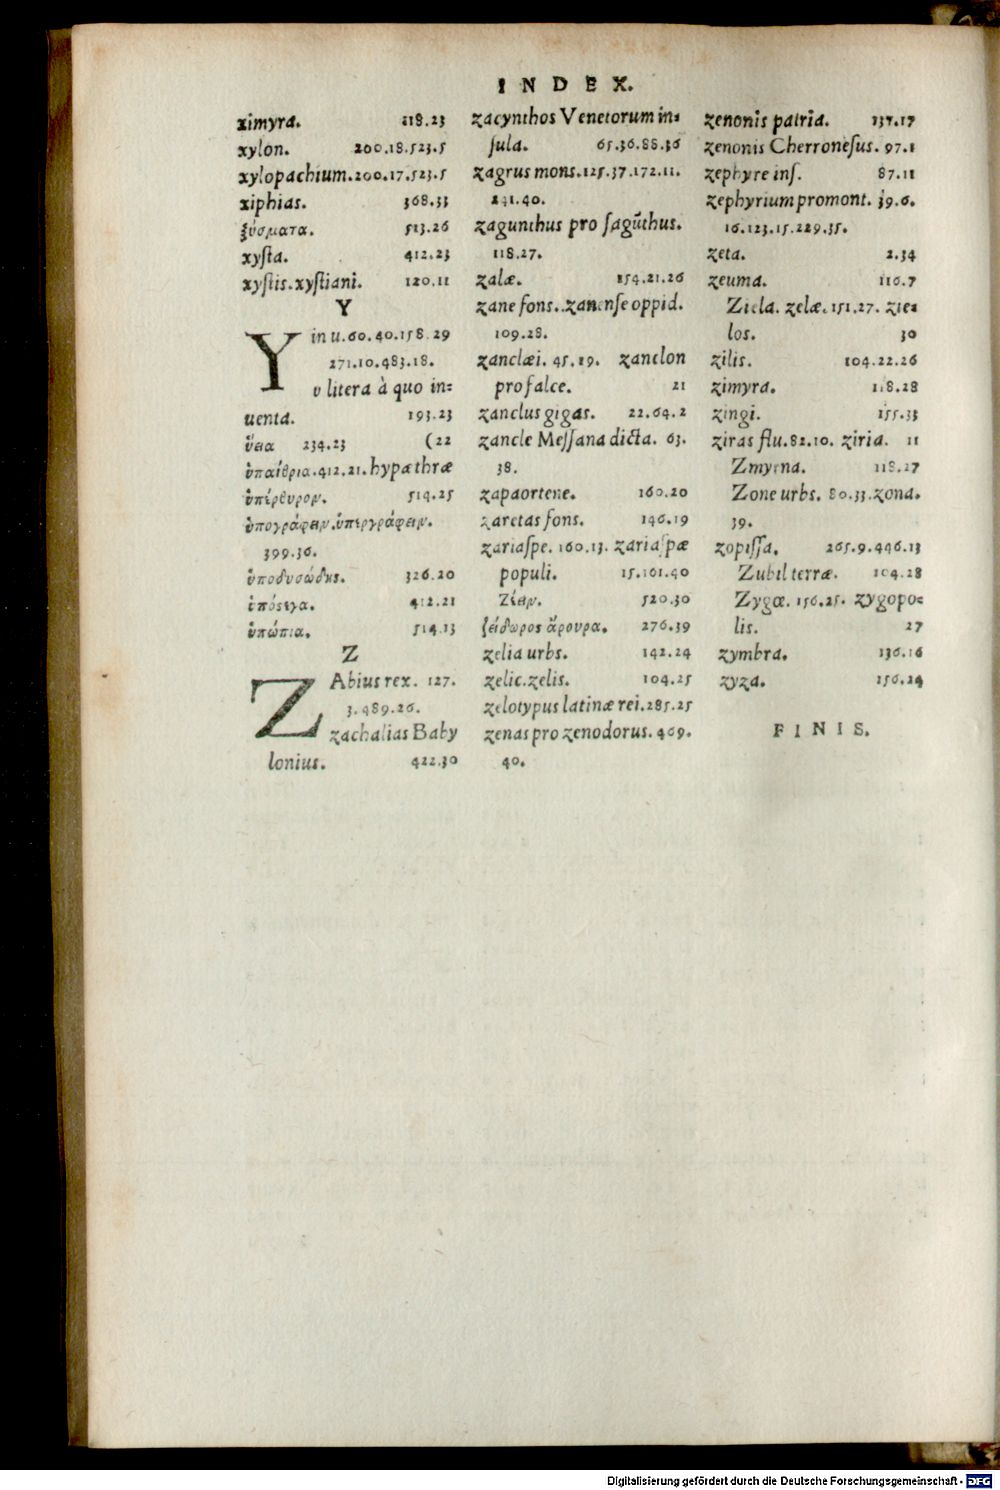 INDEX.
ximyra. 118.23
xylon. 200.18.523.5
xylopachium.200.17.523.5
xiphias. 368.33
ξύσματα. 513.26
xysta. 412.23
xystis.xystiani. 120.11
Y
Y in u.60.40.158.29
271.10.483.18.
υ litera à quo in=
uenta. 193.23
ὕεια 234.23 (22
ὑπαίθρια.412.21.hypæthræ
ὑπέρθυρον. 514.25
ὑπογράφειν.ὑπεργράφειν.
399.36.
ὑποδυσώδης. 326.20
412.21
ὑπώπια. 514.13
Z
ZAbius rex. 127.
3.489.26.
zachalias Baby
lonius. 422.30
zacynthos Venetorum in=
sula. 65.36.88.36
zagrus mons.125.37.172.11.
241.40.
zagunthus pro sagũthus.
118.27.
zalæ. 154.21.26
zane fons..zanense oppid.
109.28.
zanclæi. 45.19. zanclon
pro falce. 21
zanclus gigas. 22.64.2
zancle Messana dicta. 63.
38.
zapaortene. 160.20
zaretas fons. 146.19
zariaspe. 160.13. zariaspæ
populi. 15.161.40
Ζίειν. 520.30
ζείδωρος ἄρουρα. 276.39
zelia urbs. 142.24
zelic.zelis. 104.25
zelotypus latinæ rei.285.25
zenas pro zenodorus. 469.
40.
zenonis patria. 137.17
zenonis Cherronesus. 97.1
zephyre ins. 87.11
zephyrium promont. 39.6.
16.123.15.229.35.
zeta. 2.34
zeuma. 116.7
Ziela. zelæ.151.27. zie=
los. 30
zilis. 104.22.26
zimyra. 118.28
zingi. 155.33
ziras flu.82.10. ziria. 11
Zmyrna. 118.27
Zone urbs. 80.33.zona.
39.
zopissa. 265.9.446.13
Zubil terræ. 104.28
Zygæ. 156.25. zygopo=
lis. 27
zymbra. 136.16
zyza. 156.24
FINIS.
Digitalisierung gefördert durch die Deutsche Forschungsgemeinschaft - DFG